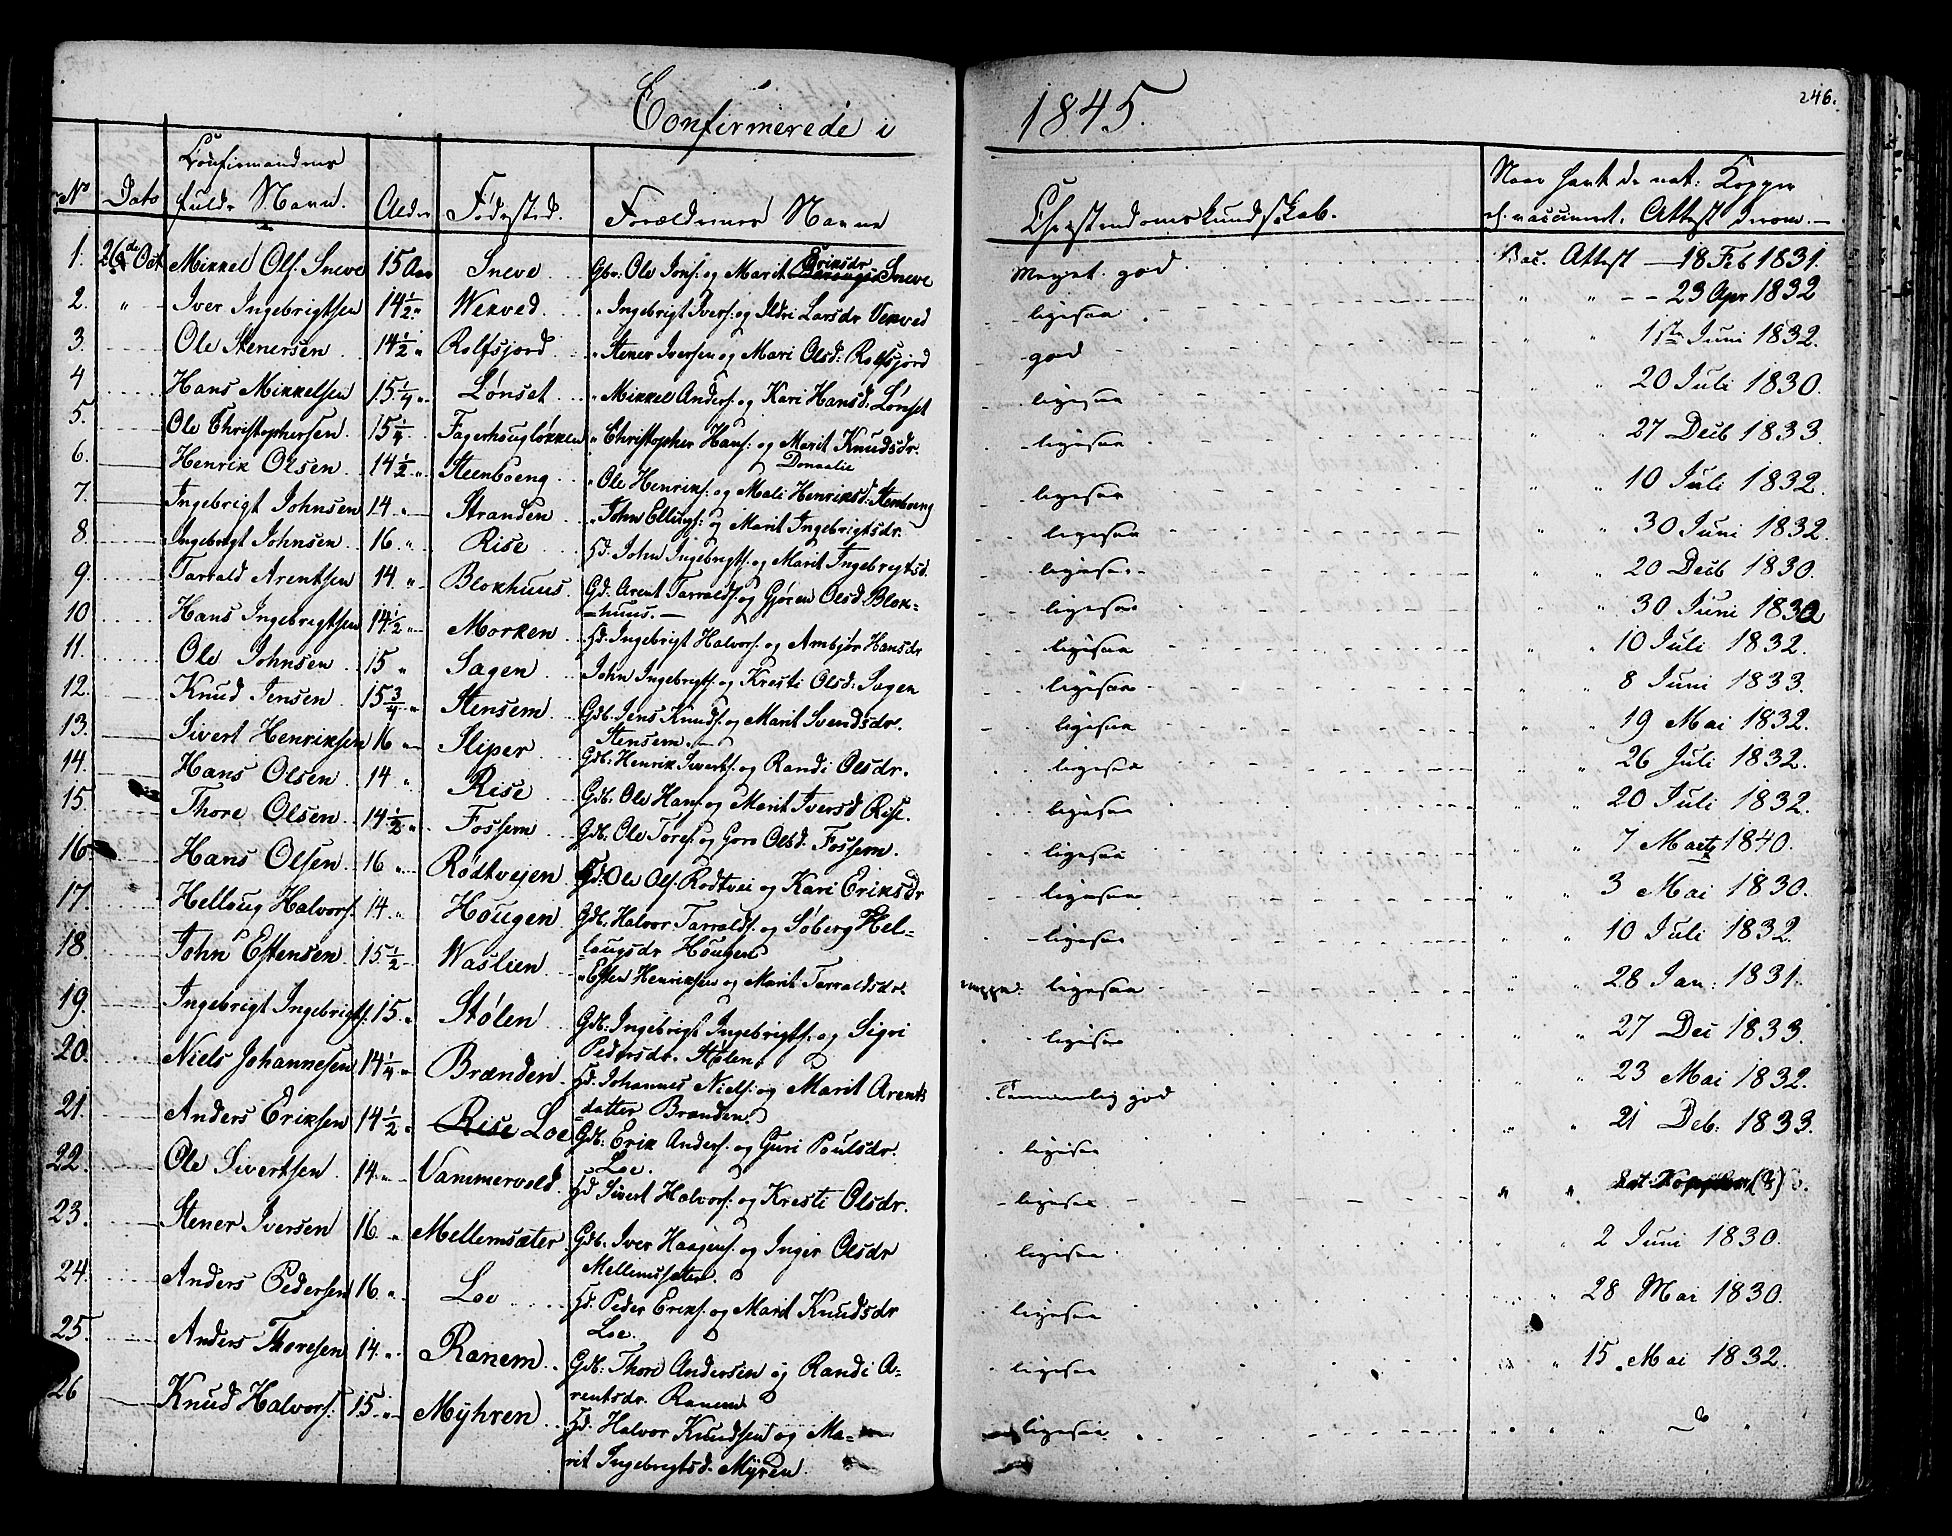 Confirmerede i 1845.
246.
No Dato Confirmandens fulde Navn. Alder Fødested. Forældrenes Navne Christendomskundskab. Naar havt de nat: Kopper el. vaccineret. Attest derom.
1. 26de Oct Mikkel Ols. Sneve 15 Aar Sneve Gbr. Ole Jons: og Marit Eriksdr Sneve Meget god Vac. Attest — 18 Feb 1831.
2. " Iver Ingebrigtsen 14 1/2 " Wekved " Ingebrigt Ivers: og Ildri Larsdr Vekved ligesaa " " 23 Apr 1832
3. Ole Stenersen 14 1/2 " Rolfsjord " Stener Iversen og Mari Olsd: Rolfsjord god " " 1ste Juni 1832.
4 Hans Mikkelsen 15 1/4 " Lønset " Mikkel Anders: og Kari Hansd: Lønset ligesaa " 20 Juli 1830.
5. Ole Christophersen. 15 1/4 Fagerhougløkken " Christopher Hans: og Marit Knudsdr. ligesaa " " 27 Decb 1833.
6. Henrik Olsen 14 1/2 " Steenboeng " Ole Henriks: og Mali Henriksd: Stenboeng ligesaa " " 10 Juli 1832.
7. Ingebrigt Johnsen 14 " Stranden " John Ellings: og Marit Ingebrigtsdr. ligesaa " " 30 Juni 1832.
8. Ingebrigt Johnsen 16 " Rise Hd. John Ingebrigts: og Marit Ingebrigtsd. ligesaa " " 20 Decb 1830.
9. Tarrald Arentsen 14 " Blokhuus Gd. Arent Tarralds: og Gjøren Olsd. Blok=
=huus. — ligesaa " " 30 Juni 1832
10. Hans Ingebrigtsen 14 1/2 " Morken Hd. Ingebrigt Halvors: og Ambjør Hansdr ligesaa " " 10 Juli 1832.
11. Ole Johnsen 15 " Sagen John Ingebrigts: og Kresti Olsd: Sagen ligesaa " " 8 Juni 1833.
12. Knud Jensen 15 3/4 " Stensem Gdb. Jens Knuds: og Marit Svendsdr.
Stensem. — ligesaa " " 19 Mai 1832.
13. Sivert Henriksen 16 " Sliper Gdb. Henrik Siverts: og Randi Olsdr. ligesaa " 26 Juli 1832.
14. Hans Olsen 14 " Rise Gdb. Ole Hans: og Marit Iversd Rise. ligesaa " " 20 Juli 1832.
15 Thore Olsen 14 1/2 " Fossem Gdb. Ole Tores: og Goro Olsd. Fossem. ligesaa " " 7 Marts 1840.
16. Hans Olsen 16 " Rødtvejen Gd. Ole Ols: Rødtvei og Kari Eriksdr ligesaa " " 3 Mai 1830.
17. Helloug Halvors: 14 " Hougen Gdb. Halvor Tarralds: og Søberg Hel=
=lougsdr Hougen ligesaa " 10 Juli 1832.
18. John Estensen 15 1/2 Waslien " Esten Henriksen og Marit Tarraldsdr. neppe ligesaa " " 28 Jan: 1831.
19. Ingebrigt Ingebrigts: 15. " Stølen Gdb. Ingebrigt Ingebrigts: og Sigri
Pedersdr. Stølen. ligesaa " " 27 Dec 1833.
20. Niels Johannesen 14 1/4 " Brænden Hd. Johannes Niels: og Marit Arents
datter Brænden. Temmelig god " 23 Mai 1832.
21. Anders Eriksen 14 1/2 " Rise Loe Gdb. Erik Anders: og Guri Poulsdr.
Loe. ligesaa " " 21 Deb: 1833.
22. Ole Sivertsen 14. " Vammervold. Hd Sivert Halvors: og Kresti Olsdr. ligesaa " "
23. Stener Iversen 16 " Mellemsæter Gdb. Iver Haagens: og Inger Olsdr
Mellemsæter. ligesaa " 2 Juni 1830.
24. Anders Pedersen 16 " Loe Hd. Peder Eriks: og Marit Knudsdr
Loe. ligesaa " 28 Mai 1830.
25. Anders Thoresen 14. " Ranem Gdb. Thore Andersen og Randi A=
rentsdr. Ranem ligesaa " 15 Mai 1832.
26 Knud Halvors: 15 " Myhren Hd. Halvor Knudsen og Ma=
rit Ingebrigtsd. Myren. ligesaa " " "